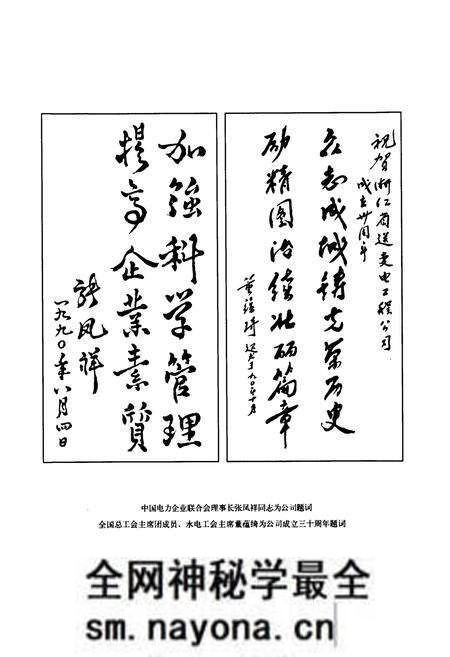 祝贺浙江省送变电工程公司
成立卅周年
众志成城铸光荣历史
励精图治续壮丽篇章
董蕴琦 九〇年十月
加強科学管理
提高企業素質
張凤祥
一九九〇年八月四日
中国电力企业联合会理事长张凤祥同志为公司题词
全国总工会主席团成员、水电工会主席董蕴绮为公司成立三十周年题词
全网神秘学最全
sm.nayona.cn